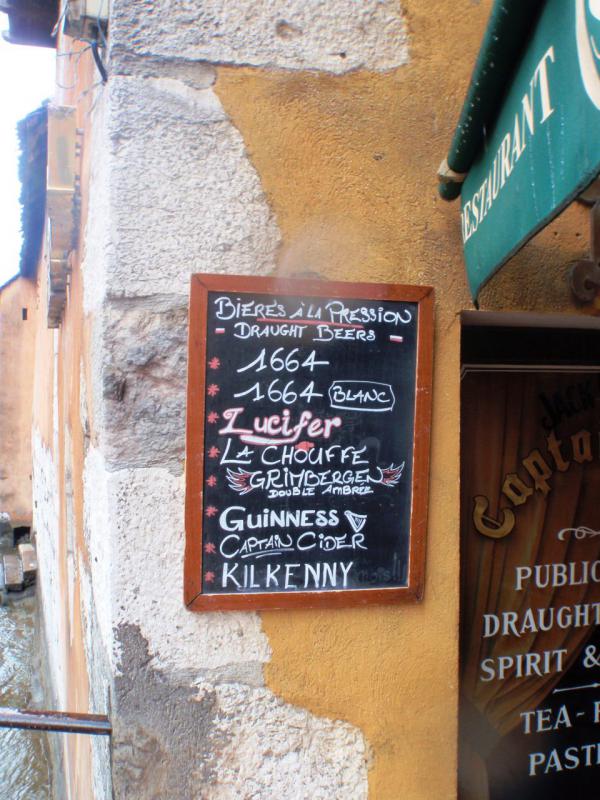 BIÈRES À LA PRESSION
DRAUGHT BEERS
1664
1664 BLANC
Lucifer
LA CHOUFFE
GRIMBERGEN
DOUBLE AMBRÉE
GUINNESS
CAPTAIN CIDER
KILKENNY
RESTAURANT
JACK
Capta
PUBLIC
DRAUGHT
SPIRIT &
TEA-
PAST